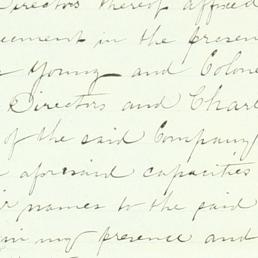 Directors thereof affixed
eement in the presen
Young and Colone
Directors and Charl
of the said Company
aforesaid capacities
names to the said
in my presence and